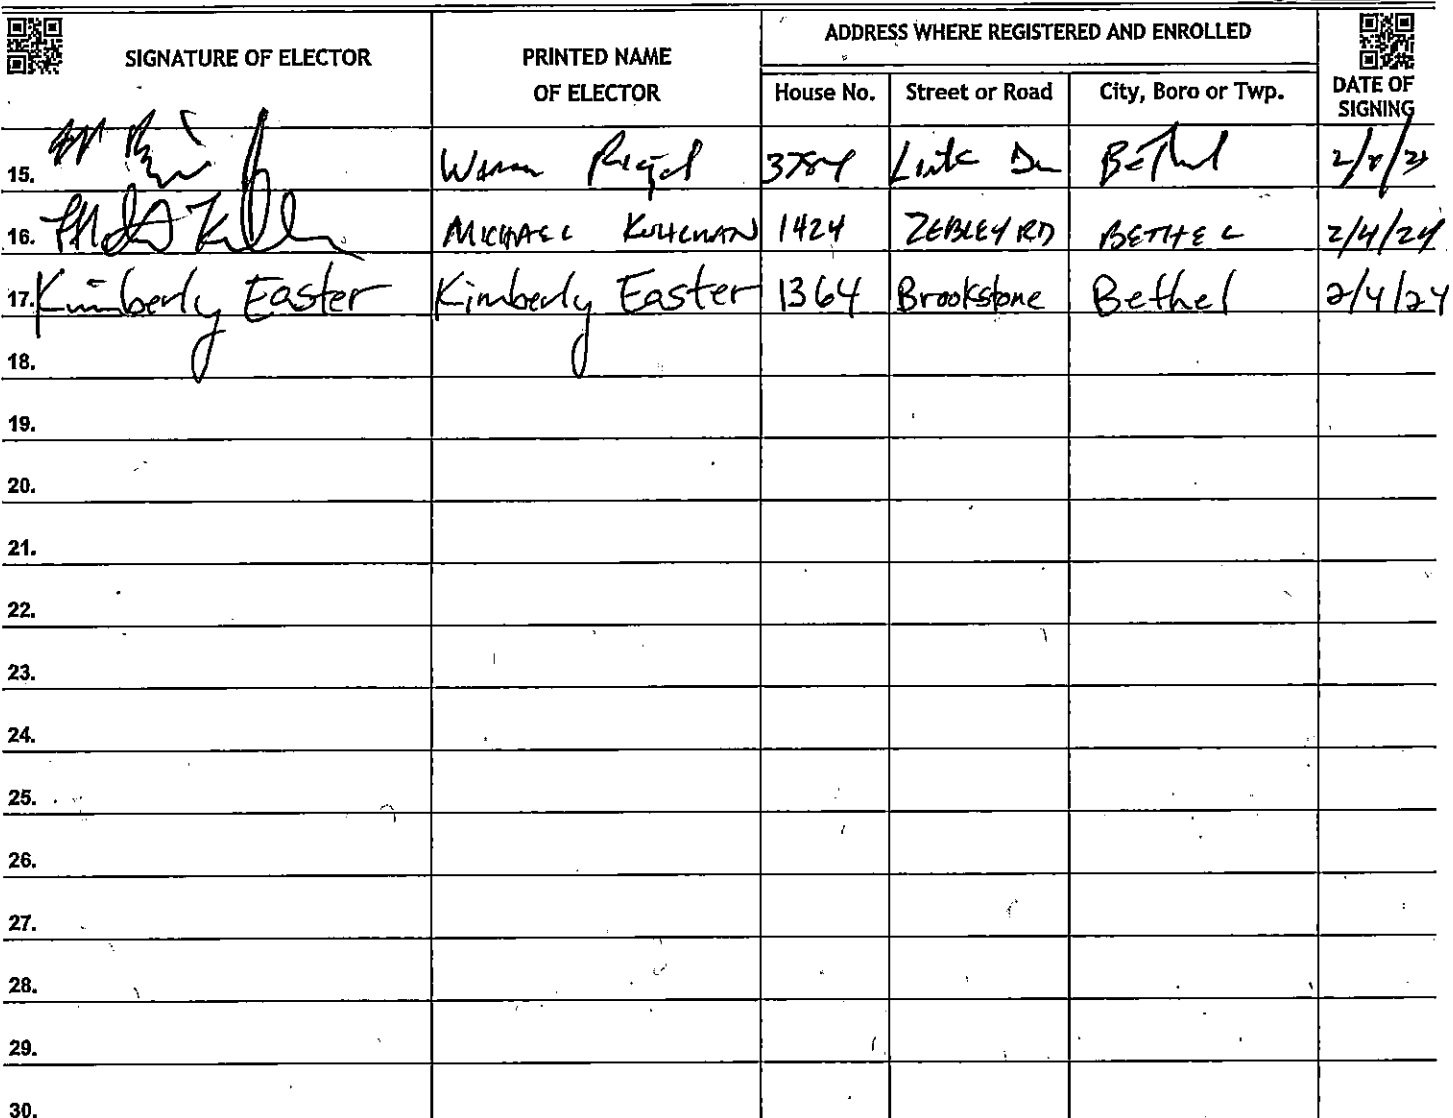 SIGNATURE OF ELECTOR
PRINTED NAME
OF ELECTOR
ADDRESS WHERE REGISTERED AND ENROLLED
House No.
Street or Road
City, Boro or Twp.
DATE OF
SIGNING
15. Bethel
16. MICHAEL 1424 ZEBLEY RD BETHEL 2/4/24
17. Kimberly Easter Kimberly Easter 1364 Brookstone Bethel 2/4/24
18.
19.
20.
21.
22.
23.
24.
25.
26.
27.
28.
29.
30.